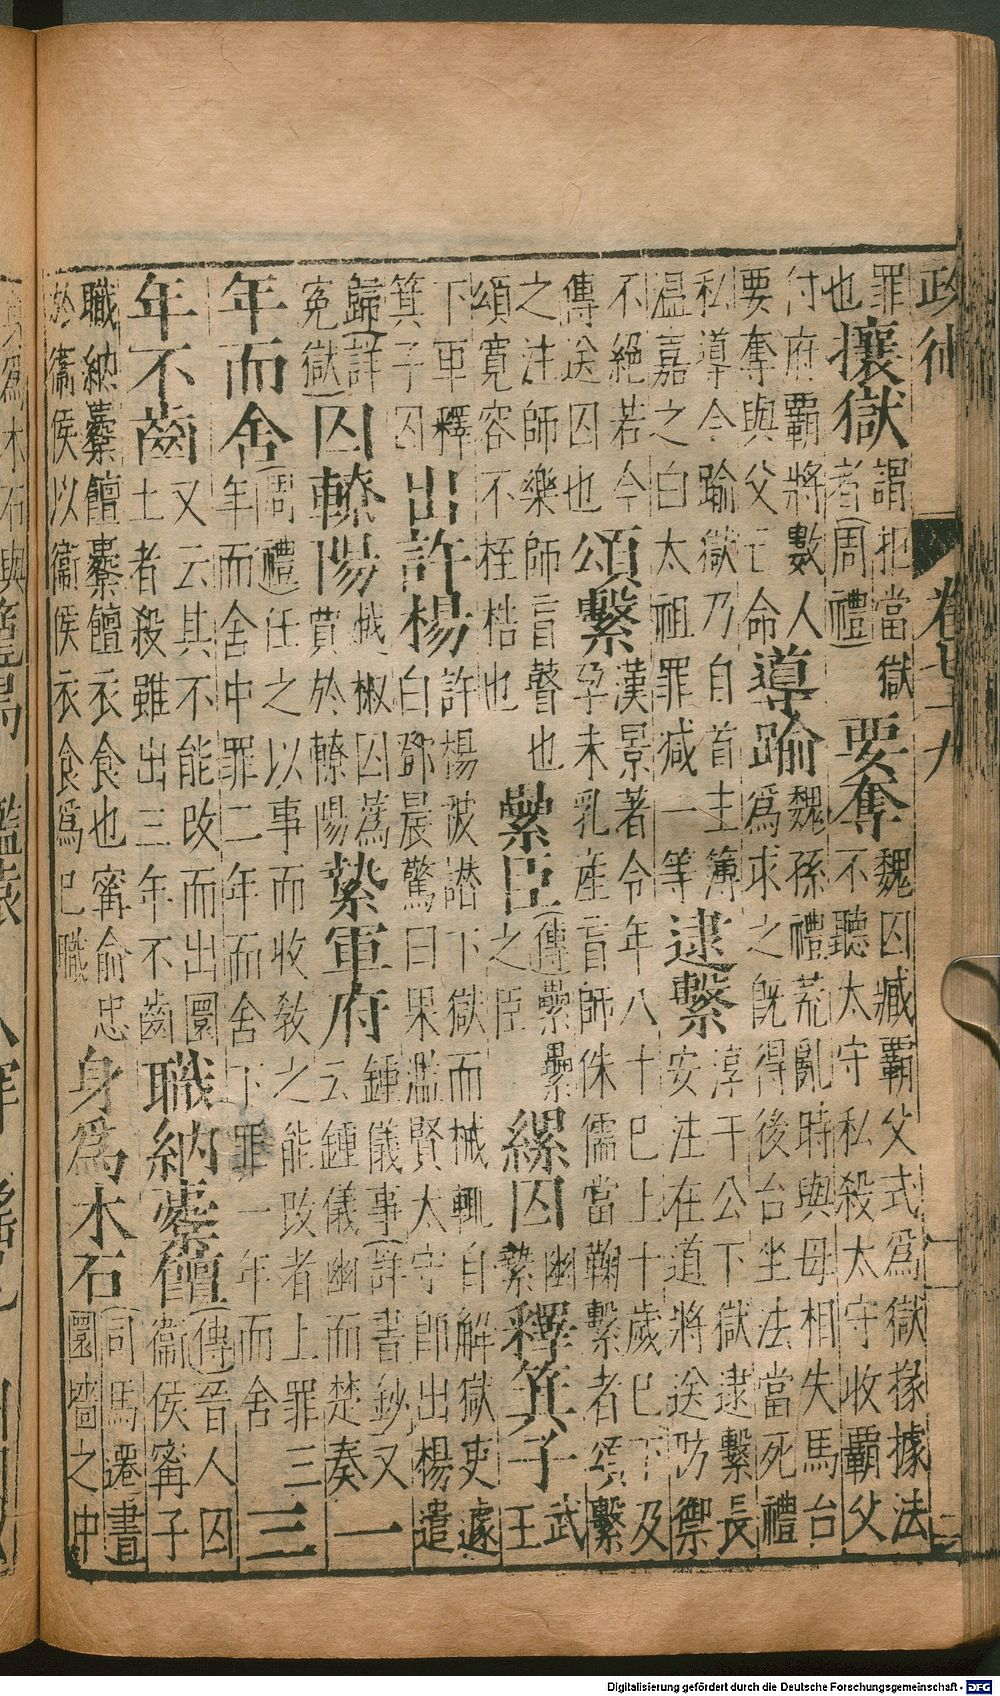 政術 卷七十九 二
罪
也
攘獄
謂扣當獄
者(周禮)
要奪
魏囚臧霸父式爲獄掾據法
不聽太守私殺太守收霸父
付府霸將數人
要奪與父亡命
導踰
魏孫禮荒亂時與母相失馬台
爲求之旣得後台坐法當死禮
私導令踰獄乃自首主簿
溫嘉之白太祖罪減一等
逮繫
淳于公下獄逮繫長
安注在道將送防禦
不絕若今
傳送囚也
頌繫
漢景著令年八十巳上十歲巳下及
孕未乳產盲師侏儒當鞠繫者頌繫
之注師樂師盲瞽也
頌寛容不桎梏也
纍臣
(傳纍纍
之臣
縲囚
幽
縶
釋箕子
武
王
下車釋
箕子囚
出許楊
許楊被譖下獄而械輒自解獄吏遽
白鄧晨驚曰果濫賢太守卽出楊遣
歸(詳
寃獄(
囚轑陽
棫椒囚蔿
賈於轑陽
縶軍府
鍾儀事(詳書鈔又
云鍾儀幽而楚奏
一
年而舍
(周禮任之以事而收敎之能改者上罪三
年而舍中罪二年而舍下罪一年而舍
三
年不齒
又云其不能改而出圜
土者殺雖出三年不齒
職納橐饘
(傳晉人囚
衞侯甯子
職納橐饘橐饘衣食也甯俞忠
於衞侯以衞侯衣食爲巳職
身爲木石
(司馬遷書
圜墻之中
Digitalisierung gefördert durch die Deutsche Forschungsgemeinschaft - DFG